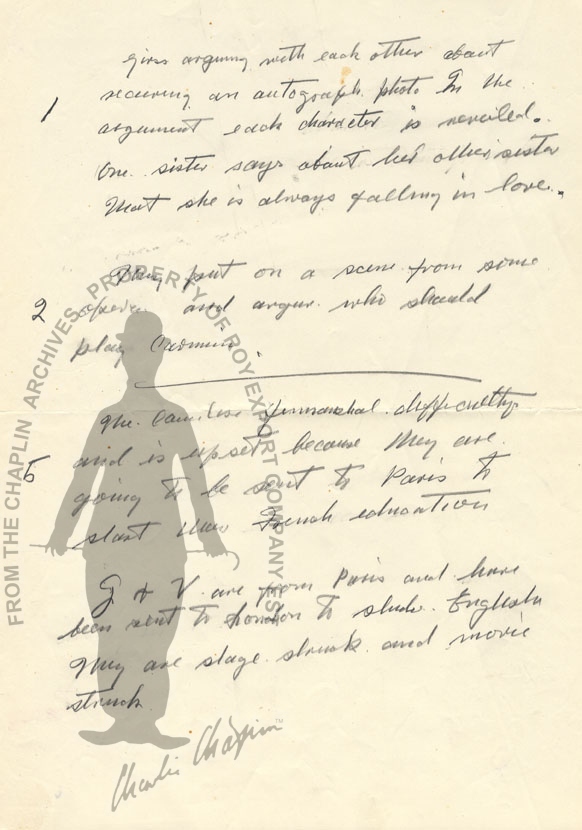 girls arguing with each other about
1 securing an autograph photo In the
argument each character is reveiled.
One sister says about her other sister
that she is always falling in love.
They put on a scene from some
2 opera and argue who should
play
The finanshal difficulty
5 and is upset because they are
going to be sent to Paris to
start their French education
G & V. are from Paris and have
been sent to London to study English
They are stage struck and movie
struck
FROM THE CHAPLIN ARCHIVES. PROPERTY OF ROY EXPORT COMPANY
Charlie Chaplin™